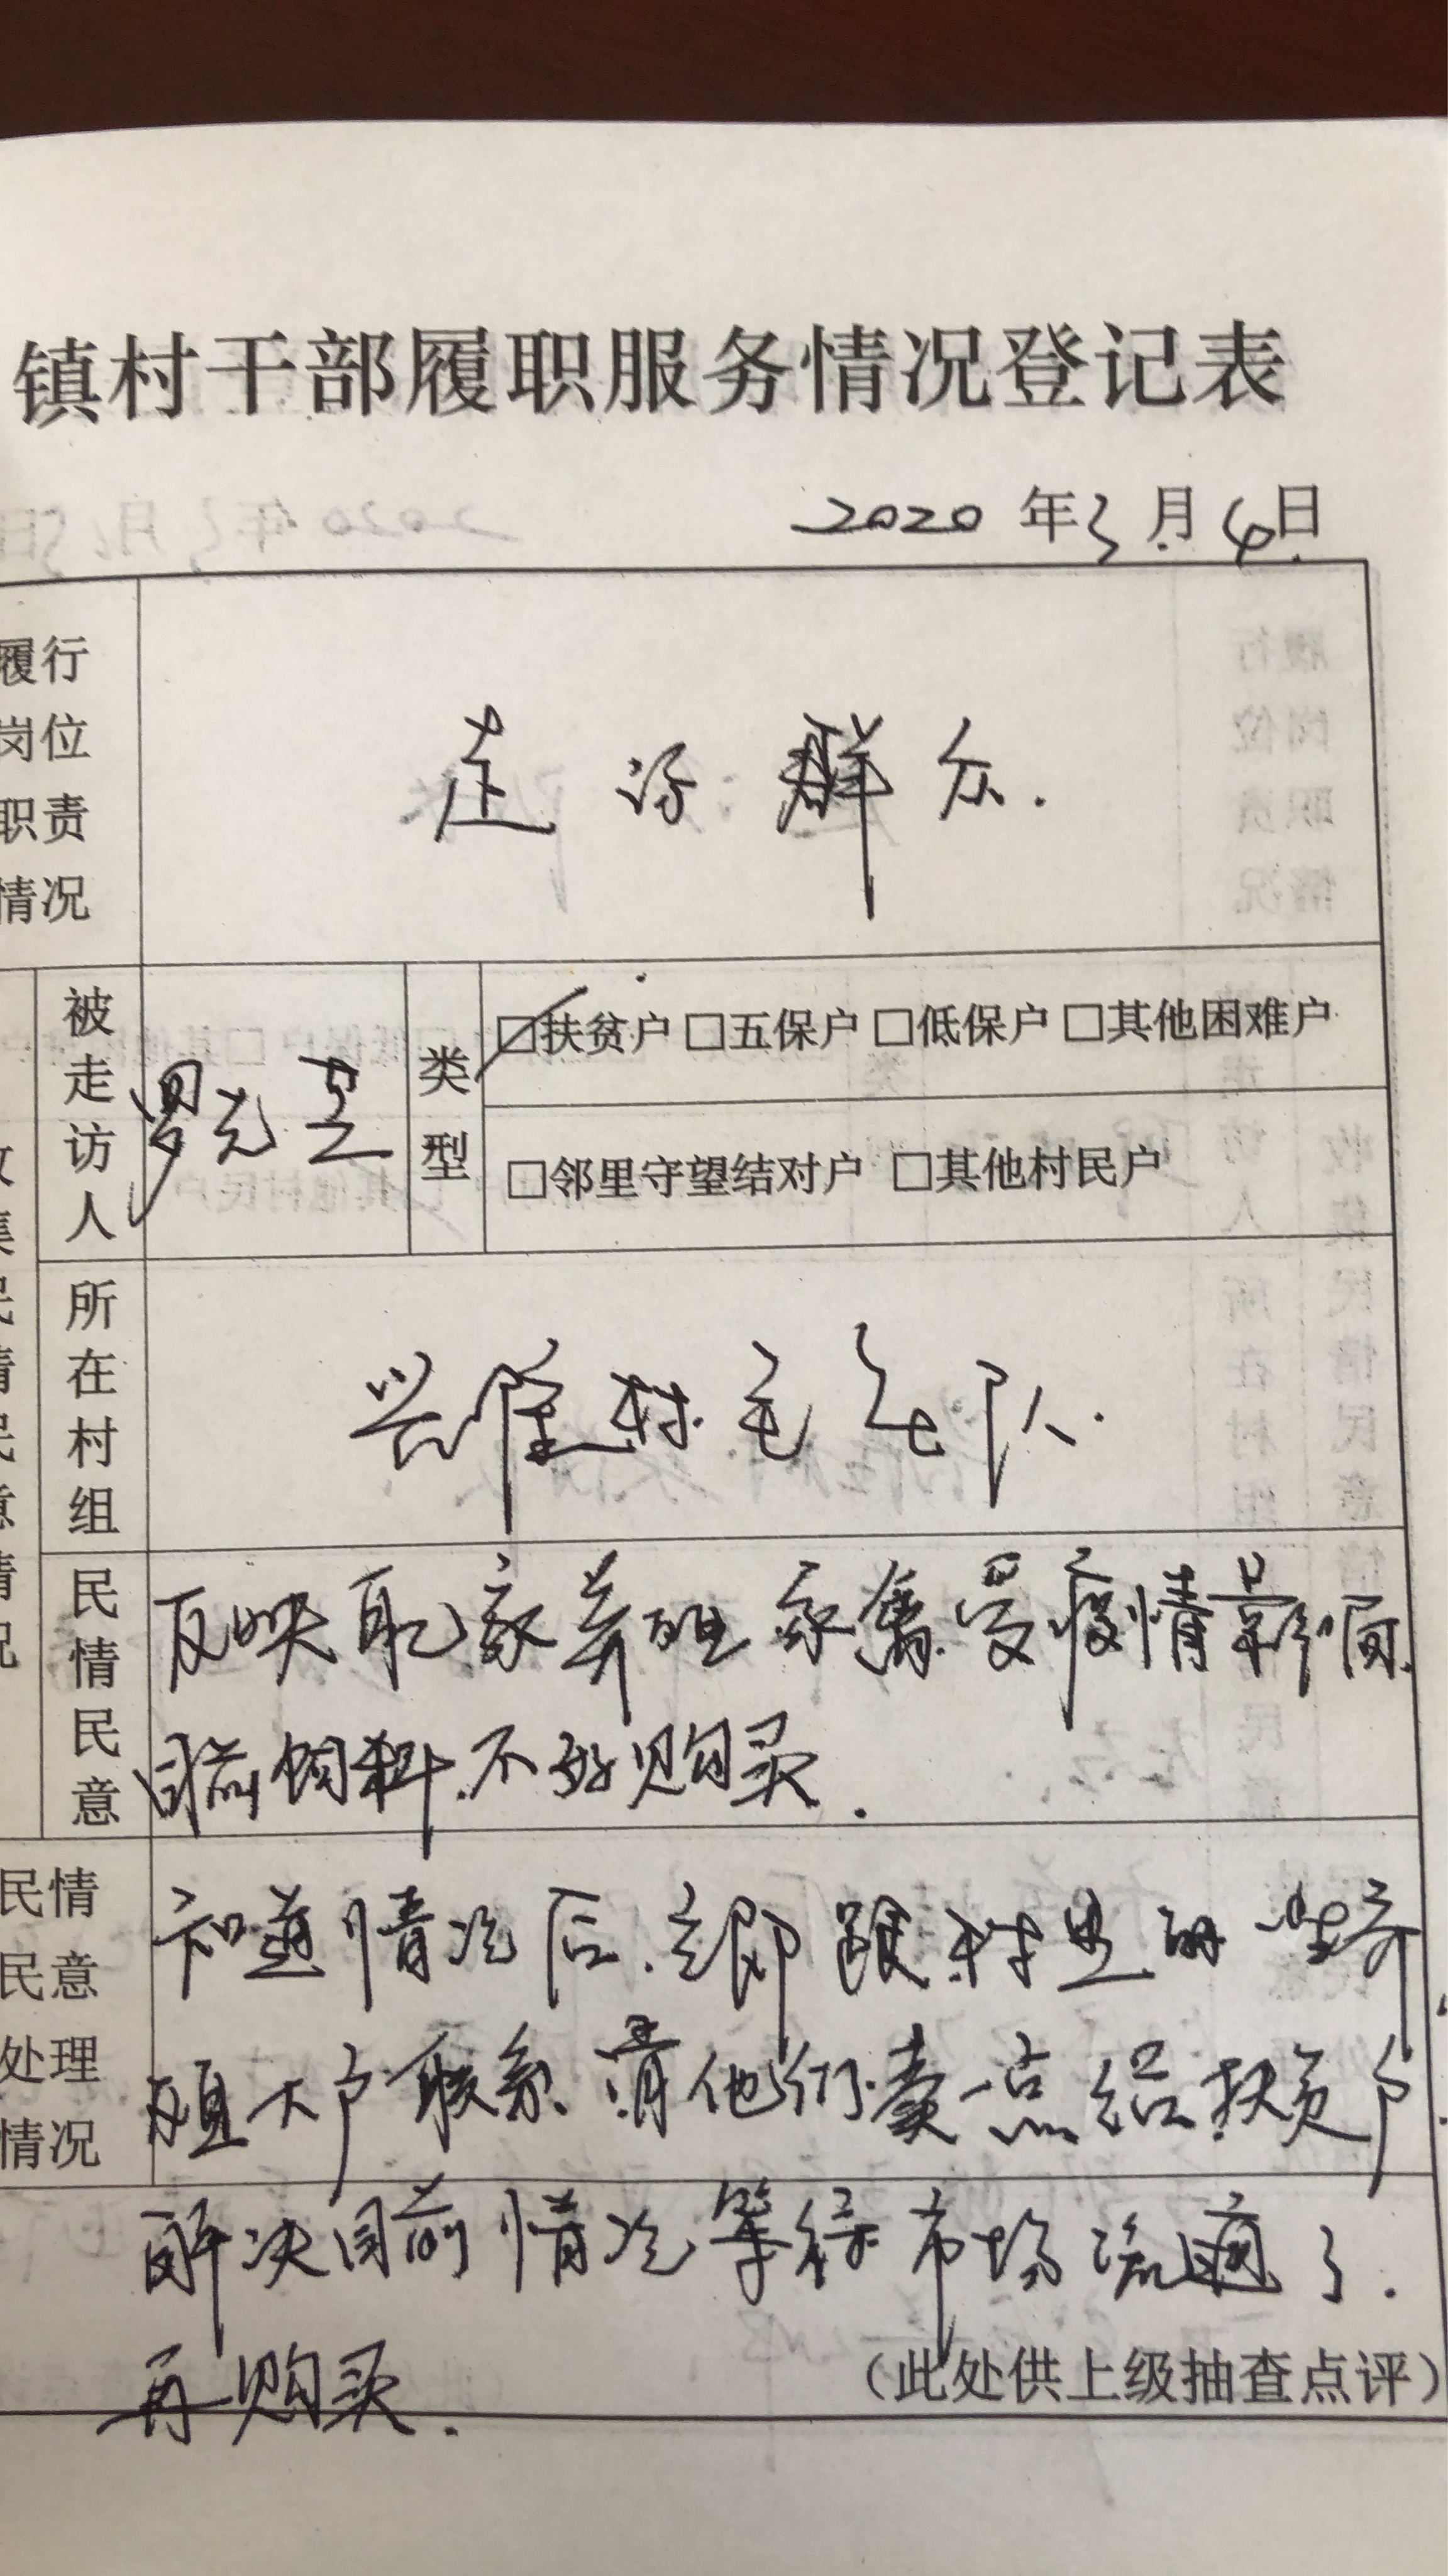 镇村干部履职服务情况登记表
2020年3月4日
履行
岗位
职责
情况
走访群众.
被走访人
罗元
类型
□扶贫户 □五保户 □低保户 □其他困难户
□邻里守望结对户 □其他村民户
集民情民意情况
所在村组
兴隆村毛 队.
民情民意
反映自己家养的 家禽.受疫情影响.
目前饲料.不好购买.
民情
民意
处理
情况
知道情况后.立即跟村里的一些养
殖大户联系.请他们卖一点给扶贫户.
解决目前情况等待市场流通了.
再购买.
(此处供上级抽查点评)